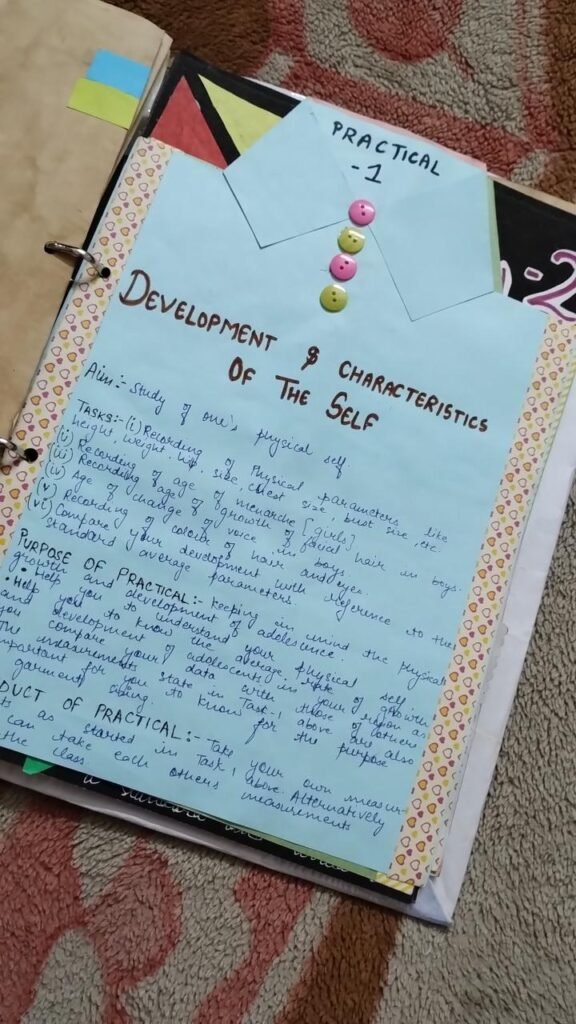 PRACTICAL
-1
DEVELOPMENT & CHARACTERISTICS
OF THE SELF
Aim:- Study of one's physical self.
TASKS:- (i) Recording of Physical parameters like
height, weight, hip size, chest size, bust size, etc.
(ii) Recording of age of menarche [girls]
(iii) Recording age of growth of facial hair in boys.
(iv) Age of change of voice in boys.
(v) Recording of colour of hair and eyes.
(vi) Compare your development with reference to the
standard average parameters.
PURPOSE OF PRACTICAL:- Keeping in mind the physical
growth and development of adolescence.
• Help you to understand your physical self
• Help you to know the average rate of growth
and development of adolescents in your region as
you compare your data with those of others
The measurements state in Task-1 above are also
important for you to know for the purpose
garment sizing
DUCT OF PRACTICAL:- Take your own measur-
ts as started in Task 1 above. Alternatively
can take each others measurements
the class.
-2